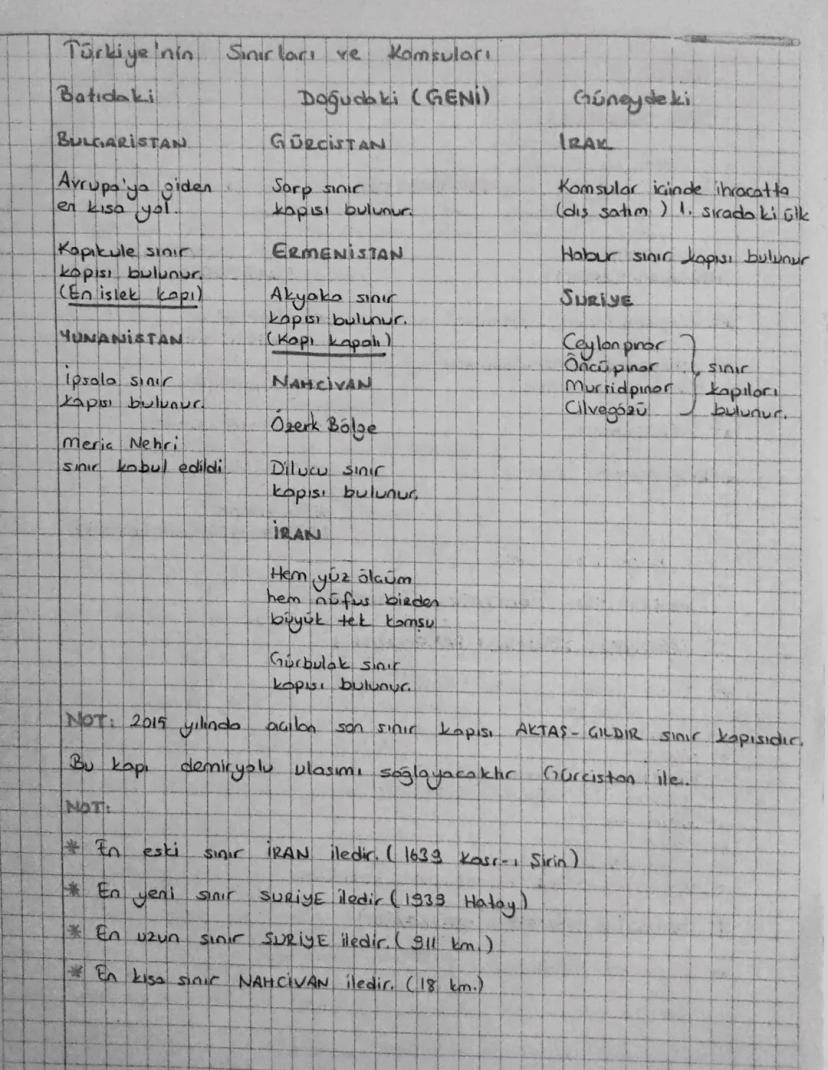 Türkiye'nin Sınırları ve Komşuları
Batıdaki
BULGARİSTAN
Avrupa'ya giden
en kısa yol.
Kapıkule sınır
kapısı bulunur.
(En işlek kapı)
YUNANİSTAN
İpsala sınır
kapısı bulunur.
Meriç Nehri
sınır kabul edildi
Doğudaki (GENİ)
GÜRCİSTAN
Sarp sınır
kapısı bulunur.
ERMENİSTAN
Akyaka sınır
kapısı bulunur.
(Kapı kapalı)
NAHCİVAN
Özerk Bölge
Dilucu sınır
kapısı bulunur.
İRAN
Hem yüz ölçüm
hem nüfus bizden
büyük tek komşu
Gürbulak sınır
kapısı bulunur.
Güneydeki
IRAK
Komşular içinde ihracatta
(dış satım) 1. sıradaki ülk
Habur sınır kapısı bulunur
SURİYE
Ceylanpınar
Öncüpınar
Mürşidpınar
Cilvegözü
sınır
kapıları
bulunur.
NOT: 2015 yılında açılan son sınır kapısı AKTAŞ-ÇILDIR sınır kapısıdır.
Bu kapı demiryolu ulaşımı sağlayacaktır Gürcistan ile.
NOT:
* En eski sınır İRAN iledir. (1639 Kasr-ı Şirin)
* En yeni sınır SURİYE iledir (1939 Hatay)
* En uzun sınır SURİYE iledir. (911 km.)
* En kısa sınır NAHCİVAN iledir. (18 km.)